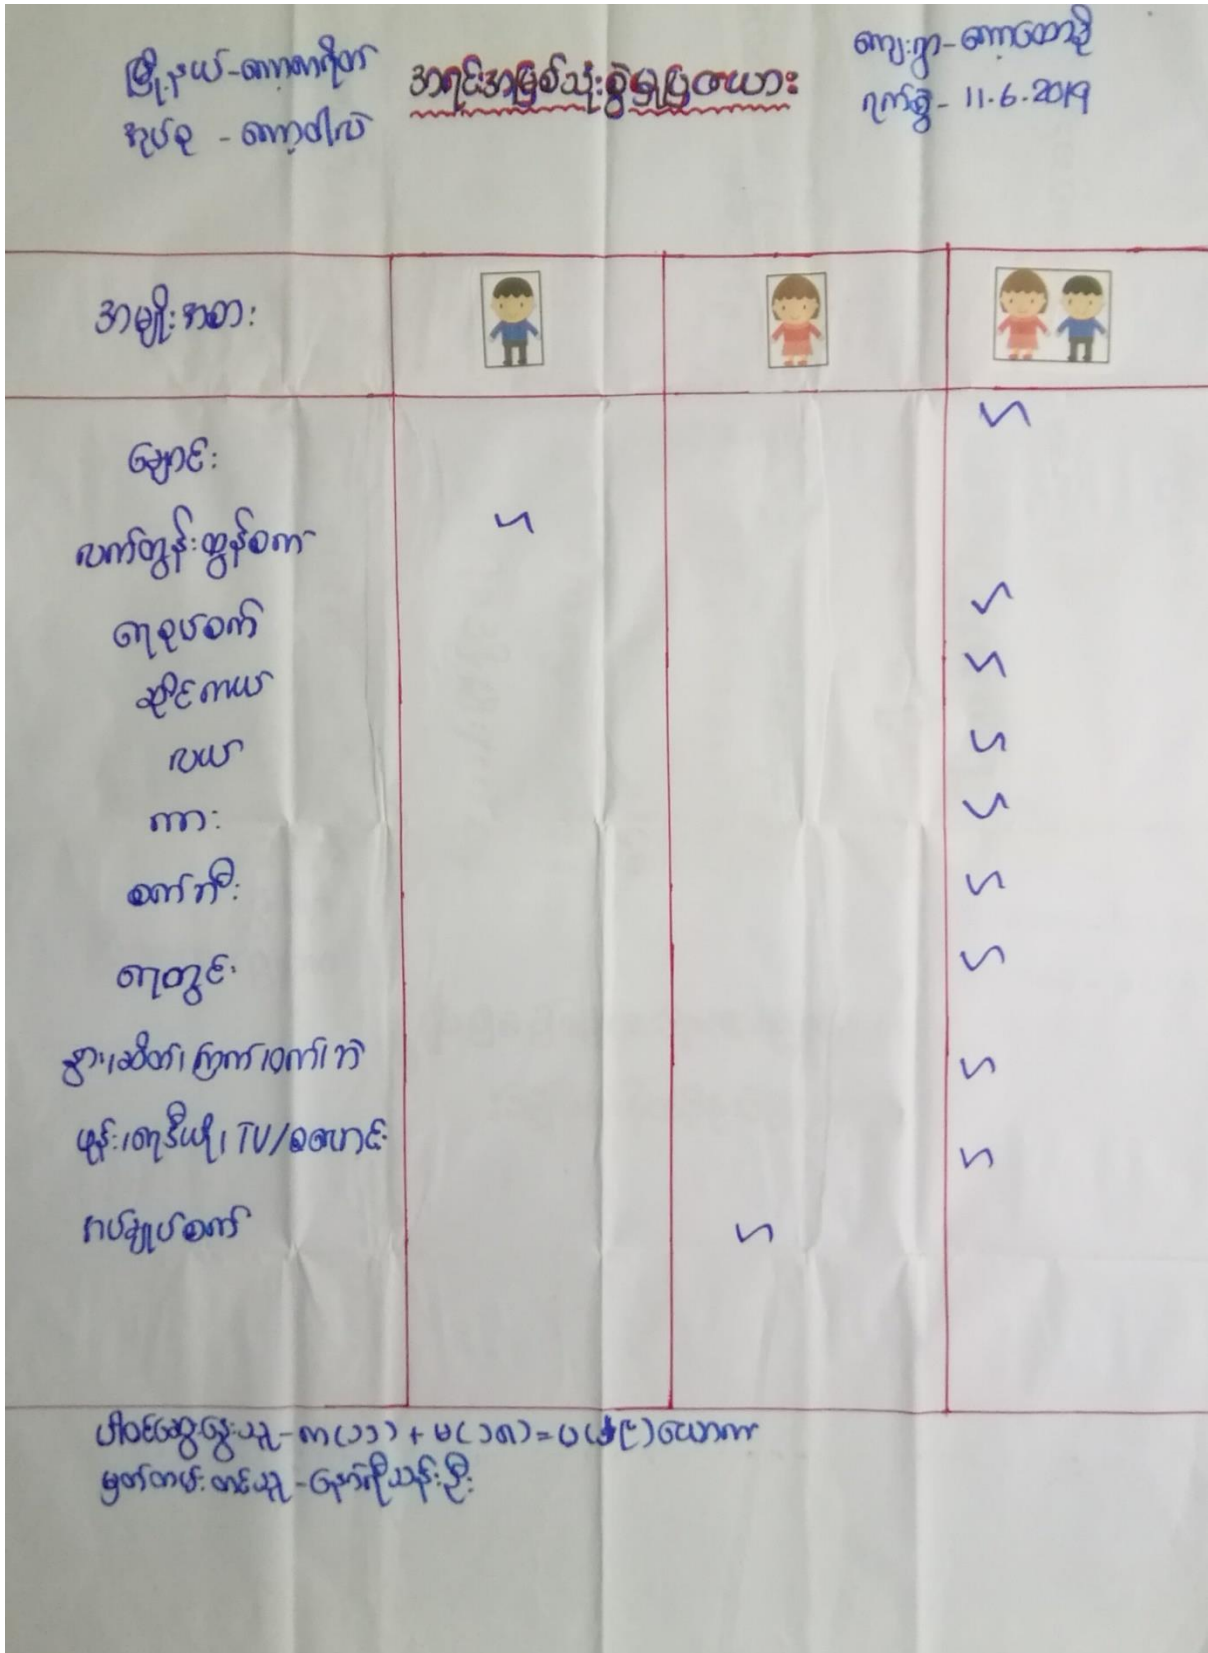 မြို့နယ်-ကော့ကရိတ်
အုပ်စု - ကော့ပါလဲ
အရင်းအမြစ်သုံးစွဲမှုပြဇယား
ကျေးရွာ-ကော့ထောဒို
ရက်စွဲ - 11.6.2019
အမျိုးအစား
ချောင်း
လက်တွန်းထွန်စက်
ရေစုပ်စက်
ဆိုင်ကယ်
လယ်
ကား
စက်ဘီး
ရေတွင်း
နွား၊ဆိတ်၊ကြက်၊ဝက်၊ဘဲ
ဖုန်း၊ရေဒီယို၊ TV/စလောင်း
အပ်ချုပ်စက်
ပါဝင်ဆွေးနွေးသူ - က
မှတ်တမ်းတင်သူ -